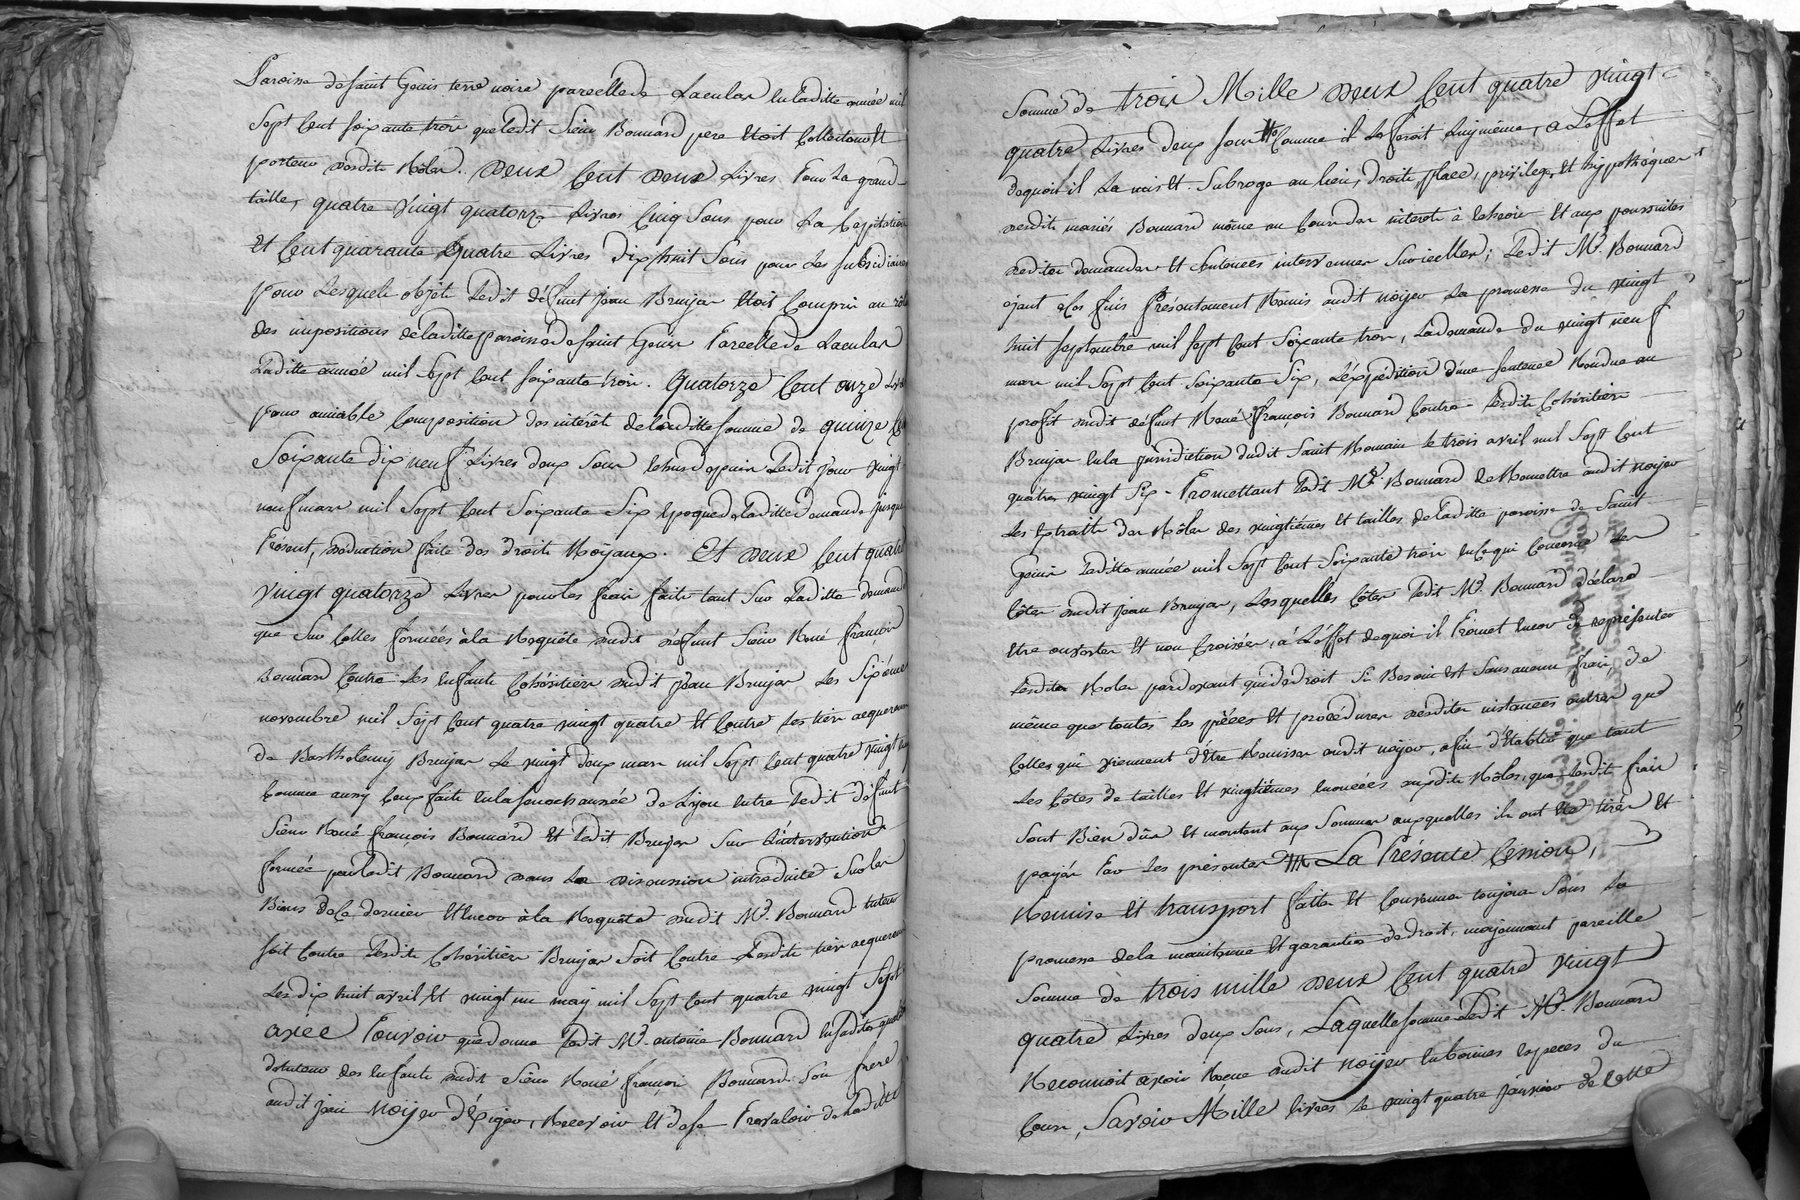 Paroisse de saint Genis terre noire parcelle de Lacular en laditte année mil
Sept Cent soixante trois que ledit Sieur Bonnard pere etoit Collecteur et
porteur desdits Rôles. Deux Cent Deux Livres Pour La grand
taille, quatre vingt quatorze Livres Cinq Sous pour La Capitation
Et Cent quarante Quatre Livres Dix huit Sous pour Les subsidiaires
pour Lesquels objets Ledit défunt jean Bruyas etoit Compris au rôle
des impositions de laditte paroisse de saint Genis Parcelle de Lacular
laditte année mil Sept Cent soixante trois. Quatorze Cent onze Livres
pour amiable Composition des intérêts de laditte somme de quinze Cent
Soixante dix neuf Livres deux Sous depuis ledit jour vingt
neuf mars mil Sept Cent Soixante Six époque de laditte demande jusqu'à
Présent, déduction faite des droits Royaux. Et Deux Cent quatre
vingt quatorze Livres pour les frais faits tant Sur laditte demande
que Sur Celles formées à la Requête dudit défunt Sieur René françois
Bonnard Contre Les Enfants Cohéritiers dudit jean Bruyas Les Sixième
novembre mil Sept Cent quatre vingt quatre Et Contre Les tiers acquereurs
de Barthelemy Bruyas Le vingt deux mars mil Sept Cent quatre vingt
Comme aussy Ceux faits en la senechaussée de Lyon entre Ledit défunt
Sieur René françois Bonnard et Ledit Bruyas Sur L'intervention
formée par ledit Bonnard dans La discussion introduite Sur les
Biens de Ce dernier Et encor à la Requête dudit Mr. Bonnard tuteur
soit Contre Lesdits Cohéritiers Bruyas Soit Contre Lesdits tiers acquereurs
Les dix huit avril et vingt un may mil Sept Cent quatre vingt Sept
avec Pouvoir que donne Ledit Mr. antoine Bonnard en saditte qualité
de tuteur des Enfants dudit Sieur René françois Bonnard Son frere
audit jean Noyer d'Exiger, Recevoir et de se Prevaloir de laditte
Somme de trois Mille Deux Cent quatre vingt
quatre Livres deux sous Comme il Le feroit Luy même, a L'effet
de quoi il La mis et Subroge au lieu, droits, place, privilege, et hyppotéques
desdits mariés Bonnard même au Cour des interets à echeoir Et aux poursuites
desdites demandes et Sentences intervenues Sur icelles; Ledit Mr. Bonnard
ayant a Ces fins Présentement Remis audit noyer La promesse du vingt
huit septembre mil sept Cent Soixante trois, La demande du vingt neuf
mars mil Sept Cent Soixante Six, L'éxpédition d'une Sentence Rendue au
profit dudit défunt René françois Bonnard Contre Lesdits Cohéritiers
Bruyas en la jurisdiction dudit Saint Romain le trois avril mil Sept Cent
quatre vingt Six - Promettant Ledit Mr. Bonnard de Remettre audit noyer
Les Extraits des Rôles des vingtiémes Et tailles de laditte paroisse de Saint
Genis laditte année mil Sept Cent Soixante trois en Ce qui Concerne Les
Côtes dudit jean Bruyas, Lesquelles Côtes Ledit Mr. Bonnard déclare
Etre ouvertes Et non Croisées, à L'éffet de quoi il Promet encor de représenter
Lesdits Roles pardevant qui de droit Si Besoin est Sans aucun frais, de
même que toutes Les pièces Et procédures desdites instances autres que
Celles qui viennent d'être Remises audit noyer, afin d'établir que tant
Les Côtes de tailles Et vingtiémes énoncées auxdits Rôles, que Lesdits frais
Sont Bien dûs Et montent aux Sommes auxquelles ils ont été tirés Et
payés Par Les présentes La Présente Cession,
Remise Et transport faitte Et Convenue toujours Sous La
promesse de la maintenue Et garantie de droit, moyennant pareille
Somme de trois mille Deux Cent quatre vingt
quatre Livres deux Sous, Laquelle somme Ledit Mr. Bonnard
Reconnoit avoir Reçue dudit Noyer en bonnes Especes du
Cour, Savoir Mille livres Le vingt quatre janvier de Cette